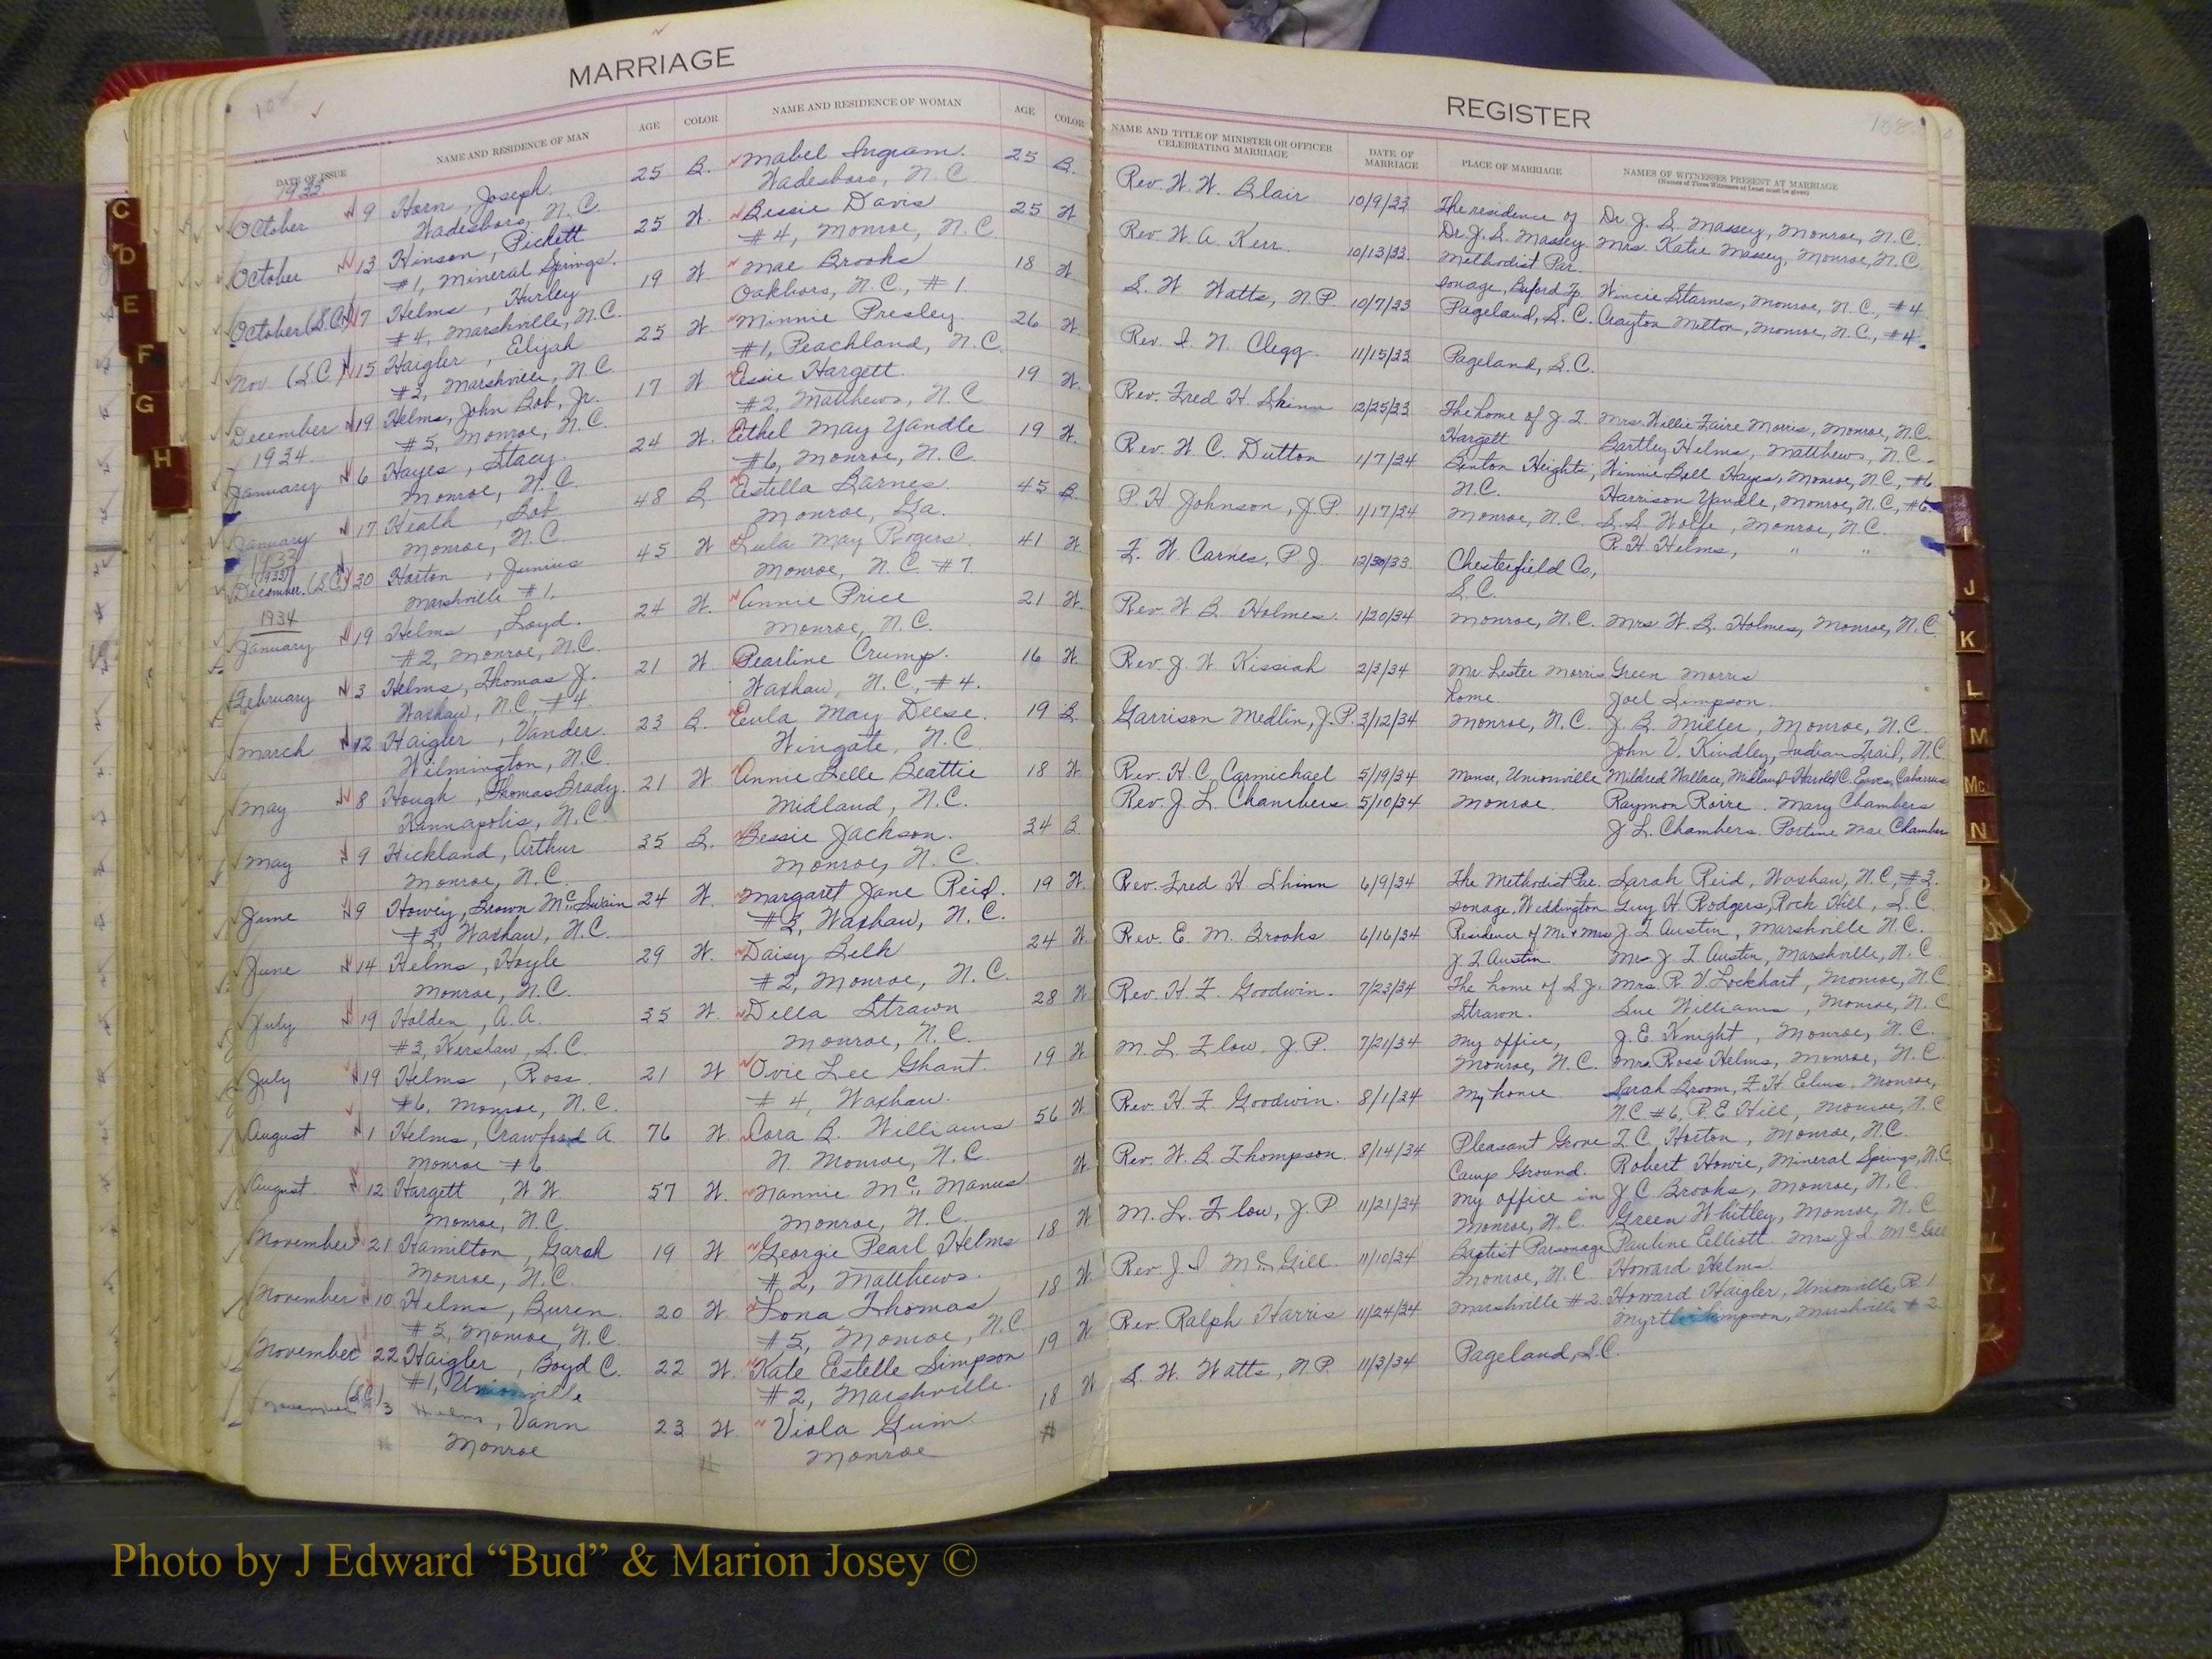 MARRIAGE
108
DATE OF ISSUE
NAME AND RESIDENCE OF MAN
AGE
COLOR
NAME AND RESIDENCE OF WOMAN
AGE
COLOR
1933
October 9 Horn, Joseph 25 B. Mabel Ingram. 25 B.
Wadesboro, N.C. Wadesboro, N.C
October 13 Hinson, Pickett 25 W. Bessie Davis 25 W
#1, Mineral Springs. #4, Monroe, N.C
October (S.C.) 7 Helms, Hurley 19 W. Mae Brooks 18 W
#4, Marshville, N.C. Oakboro, N.C., #1
Nov. (S.C.) 15 Haigler, Elijah 25 W. Minnie Presley. 26 W.
#2, Marshville, N.C #1, Peachland, N.C.
December 19 Helms, John Bob, Jr. 17 W Essie Hargett. 19 W.
#5, Monroe, N.C. #2, Matthews, N.C
1934
January 6 Hayes, Stacy. 24 W. Ethel May Yandle 19 W.
Monroe, N.C. #6, Monroe, N.C.
January 17 Heath, Bob 48 B Estella Barnes 45 B.
Monroe, N.C. Monroe, Ga.
1933
December. (S.C.) 30 Horton, Junius 45 W Lula May Rogers. 41 W
Marshville #1. Monroe, N.C. #7
1934
January 19 Helms, Loyd. 24 W. Annie Price 21 W.
#2, Monroe, N.C. Monroe, N.C.
February 3 Helms, Thomas J. 21 W Pearline Crump. 16 W.
Waxhaw, N.C., #4. Waxhaw, N.C., #4.
March 12 Haigler, Vander. 23 B. Eula May Deese. 19 B
Wilmington, N.C. Wingate, N.C.
May 8 Hough, Thomas Brady. 21 W Annie Belle Beattie 18 W
Kannapolis, N.C. Midland, N.C.
May 9 Hickland, Arthur 35 B. Bessie Jackson. 34 B
Monroe, N.C. Monroe, N.C.
June 9 Howey, Brown McSwain 24 W. Margaret Jane Reid. 19 W.
#3, Waxhaw, N.C. #3, Waxhaw, N.C.
June 14 Helms, Hoyle 29 W. Daisy Belk 24 W
Monroe, N.C. #2, Monroe, N.C.
July 19 Holden, A.A. 35 W. Della Strawn 28 W
#3, Kershaw, S.C. Monroe, N.C.
July 19 Helms, Ross. 21 W Ovie Lee Ghant. 19 W
#6, Monroe, N.C. #4, Waxhaw.
August 1 Helms, Crawford A. 76 W. Cora B. Williams 56 W
Monroe #6. N. Monroe, N.C
August. 12 Hargett, W.W. 57 W. Nannie McManus W
Monroe, N.C. Monroe, N.C.
November 21 Hamilton, 19 W Georgie Pearl Helms 18 W
Monroe, N.C. #2, Matthews.
November 10 Helms, Buren. 20 W. Thomas 18 W
#5, Monroe, N.C. #5, Monroe, N.C
November 22 Haigler, Boyd C. 22 W. Kate Estelle Simpson 19 W
#1, Unionville #2, Marshville.
November (S.C.) 3 Helms, Vann 23 W. Viola Guin. 18 W
Monroe Monroe
REGISTER
108
NAME AND TITLE OF MINISTER OR OFFICER
CELEBRATING MARRIAGE
DATE OF
MARRIAGE
PLACE OF MARRIAGE
NAMES OF WITNESSES PRESENT AT MARRIAGE
(Names of Three Witnesses at Least must be given)
Rev. W. W. Blair 10/9/33 The residence of Dr. J. S. Massey, Monroe, N.C.
Dr. J. S. Massey. Mrs. Katie Massey, Monroe, N.C.
Rev. W. A. Kerr. 10/13/33 Methodist Par.
sonage, Buford Tp. Wincie Starnes, Monroe, N.C., #4
S. W Watts, N.P. 10/7/33 Pageland, S.C. Clayton Melton, Monroe, N.C., #4.
Rev. I. N. Clegg. 11/15/33 Pageland, S.C.
Rev. Fred H. Shinn 12/25/33 The home of J. T. Mrs. Willie Faire Morris, Monroe, N.C.
Hargett. Bartley Helms, Matthews, N.C.
Rev. W. C. Dutton 1/7/34 Benton Heights, Winnie Bell Hayes, Monroe, N.C., #6
N.C. Harrison Yandle, Monroe, N.C., #6.
P. H Johnson, J.P. 1/17/34 Monroe, N.C. S. S. Wolfe, Monroe, N.C.
R. H. Helms, " "
F. W. Carnes, P.J. 12/30/33 Chesterfield Co.,
S.C.
Rev. W. B. Holmes. 1/20/34 Monroe, N.C. Mrs W. B. Holmes, Monroe, N.C.
Rev. J. W. Kissiah 2/3/34 Mr. Lester Morris Green Morris
home. Joel Simpson.
Garrison Medlin, J.P. 3/12/34 Monroe, N.C. J. B. Miller, Monroe, N.C.
John V. Kindley, Indian Trail, N.C.
Rev. H. C. Carmichael 5/19/34 Manse, Unionville Mildred Wallace, Midland Harold C. Eaves, Cabarrus
Rev. J. L. Chambers. 5/10/34 Monroe. Raymon Mary Chambers
J. L. Chambers. Mae Chamber
Rev. Fred H Shinn 6/9/34 The Methodist Par. Sarah Reid, Waxhaw, N.C, #3.
sonage, Weddington Guy H. Rodgers, Rock Hill, S.C.
Rev. E. M. Brooks 6/16/34 Residence of Mr. & Mrs J. T. Austin, Marshville N.C.
J. T. Austin. Mrs J. T. Austin, Marshville, N.C
Rev. H. F. Goodwin. 7/23/34 The home of S. J. Mrs. R. V. Lockhart, Monroe, N.C.
Strawn. Sue Williams, Monroe, N.C
M. L. Flow, J.P. 7/21/34 My office, J. E. Knight, Monroe, N.C.
Monroe, N.C. Mrs. Ross Helms, Monroe, N.C.
Rev. H. F. Goodwin. 8/1/34 My home Sarah Broom, F. H. Elms, Monroe,
N.C. #6, R. E Hill, Monroe, N.C
Rev. W. B. Thompson. 8/14/34 Pleasant Grove T. C. Horton, Monroe, N.C.
Camp Ground. Robert Howie, Mineral Springs, N.C.
M. L. Flow, J.P. 11/21/34 My office in J. C. Brooks, Monroe, N.C.
Monroe, N.C. Green Whitley, Monroe, N.C
Rev. J. I McGill. 11/10/34 Baptist Parsonage Pauline Elliott. Mrs J. I. McGill
Monroe, N.C Howard Helms
Rev. Ralph Harris 11/24/34 Marshville #2. Howard Haigler, Unionville, R. 1
Myrtle Simpson, Marshville #2
S. W. Watts, N.P. 11/3/34 Pageland, S.C.
C
D
E
F
G
H
I
J
K
L
M
Mc
N
Photo by J Edward “Bud” & Marion Josey ©